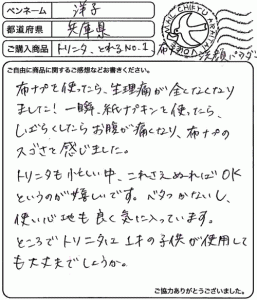 ペンネーム 洋子
都道府県 兵庫県
ご購入商品 トリニタ、とれるNO.1 布ナプキン 洗顔パウダー
MAIL CHIKYU ARAIMAN
ご自由に商品に関するご感想などお書きください。
布ナプを使ってから、生理痛が全くなくなり
ました!一瞬、紙ナプキンを使ってたら、
しばらくしたらお腹が痛くなり、布ナプの
スゴさを感じました。
トリニタも小じい中、これさえぬればOK
というのが嬉しいです。ベタつかないし、
使い心地も良く気に入っています。
ところでトリニタは1才の子供が使用して
も大丈夫でしょうか。
ご協力ありがとうございました。